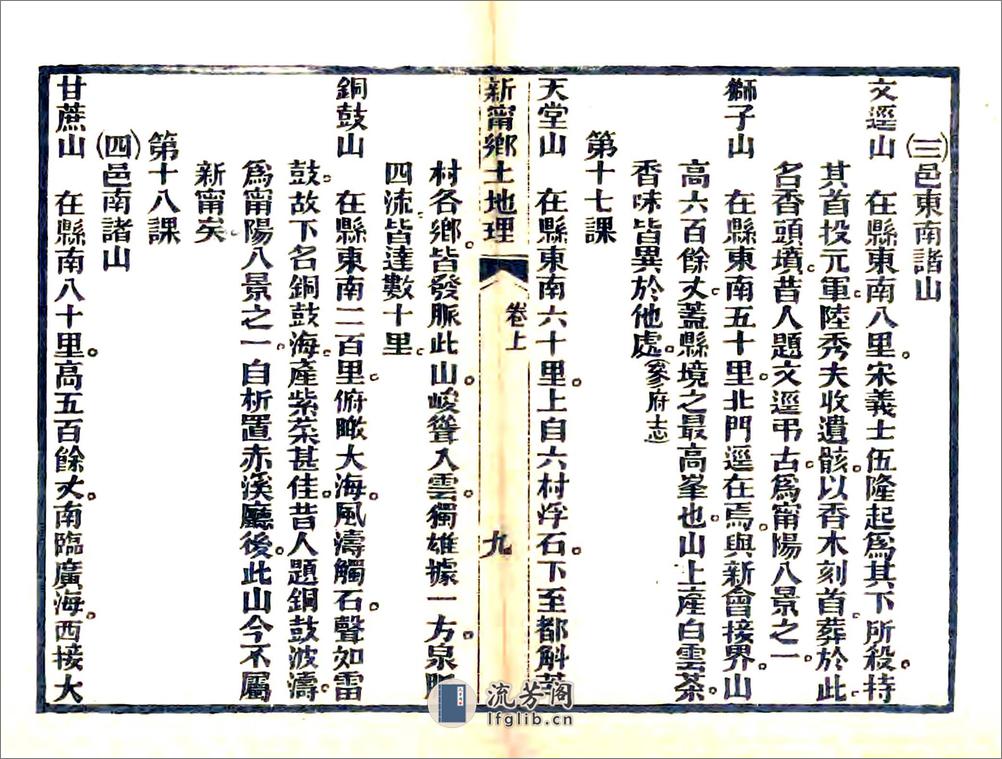 (三)邑東南諸山
文逕山　在縣東南八里。宋義士伍隆起爲其下所殺持
其首投元軍。陸秀夫收遺骸以香木刻首葬於此。
名香頭墳。昔人題文逕弔古。爲甯陽八景之一
獅子山　在縣東南五十里。北門逕在焉。與新會接界。山
高六百餘丈。蓋縣境之最高峯也。山上產白雲茶。
香味皆異於他處。(參府志)
第十七課
天堂山　在縣東南六十里。上自六村浮石。下至都斛莘
新甯鄉土地理　卷上　九
村各鄉。皆發脈此山。峻聳入雲。獨雄據一方。泉脈
四流。皆達數十里。
銅鼓山　在縣東南二百里。俯瞰大海。風濤觸石。聲如雷
鼓。故下名銅鼓海。產紫菜甚佳。昔人題銅鼓波濤。
爲甯陽八景之一。自析置赤溪廳後。此山今不屬
新甯矣
第十八課
(四)邑南諸山
甘蔗山　在縣南八十里。高五百餘丈。南臨廣海。西接大
流芳閣
lfglib.cn